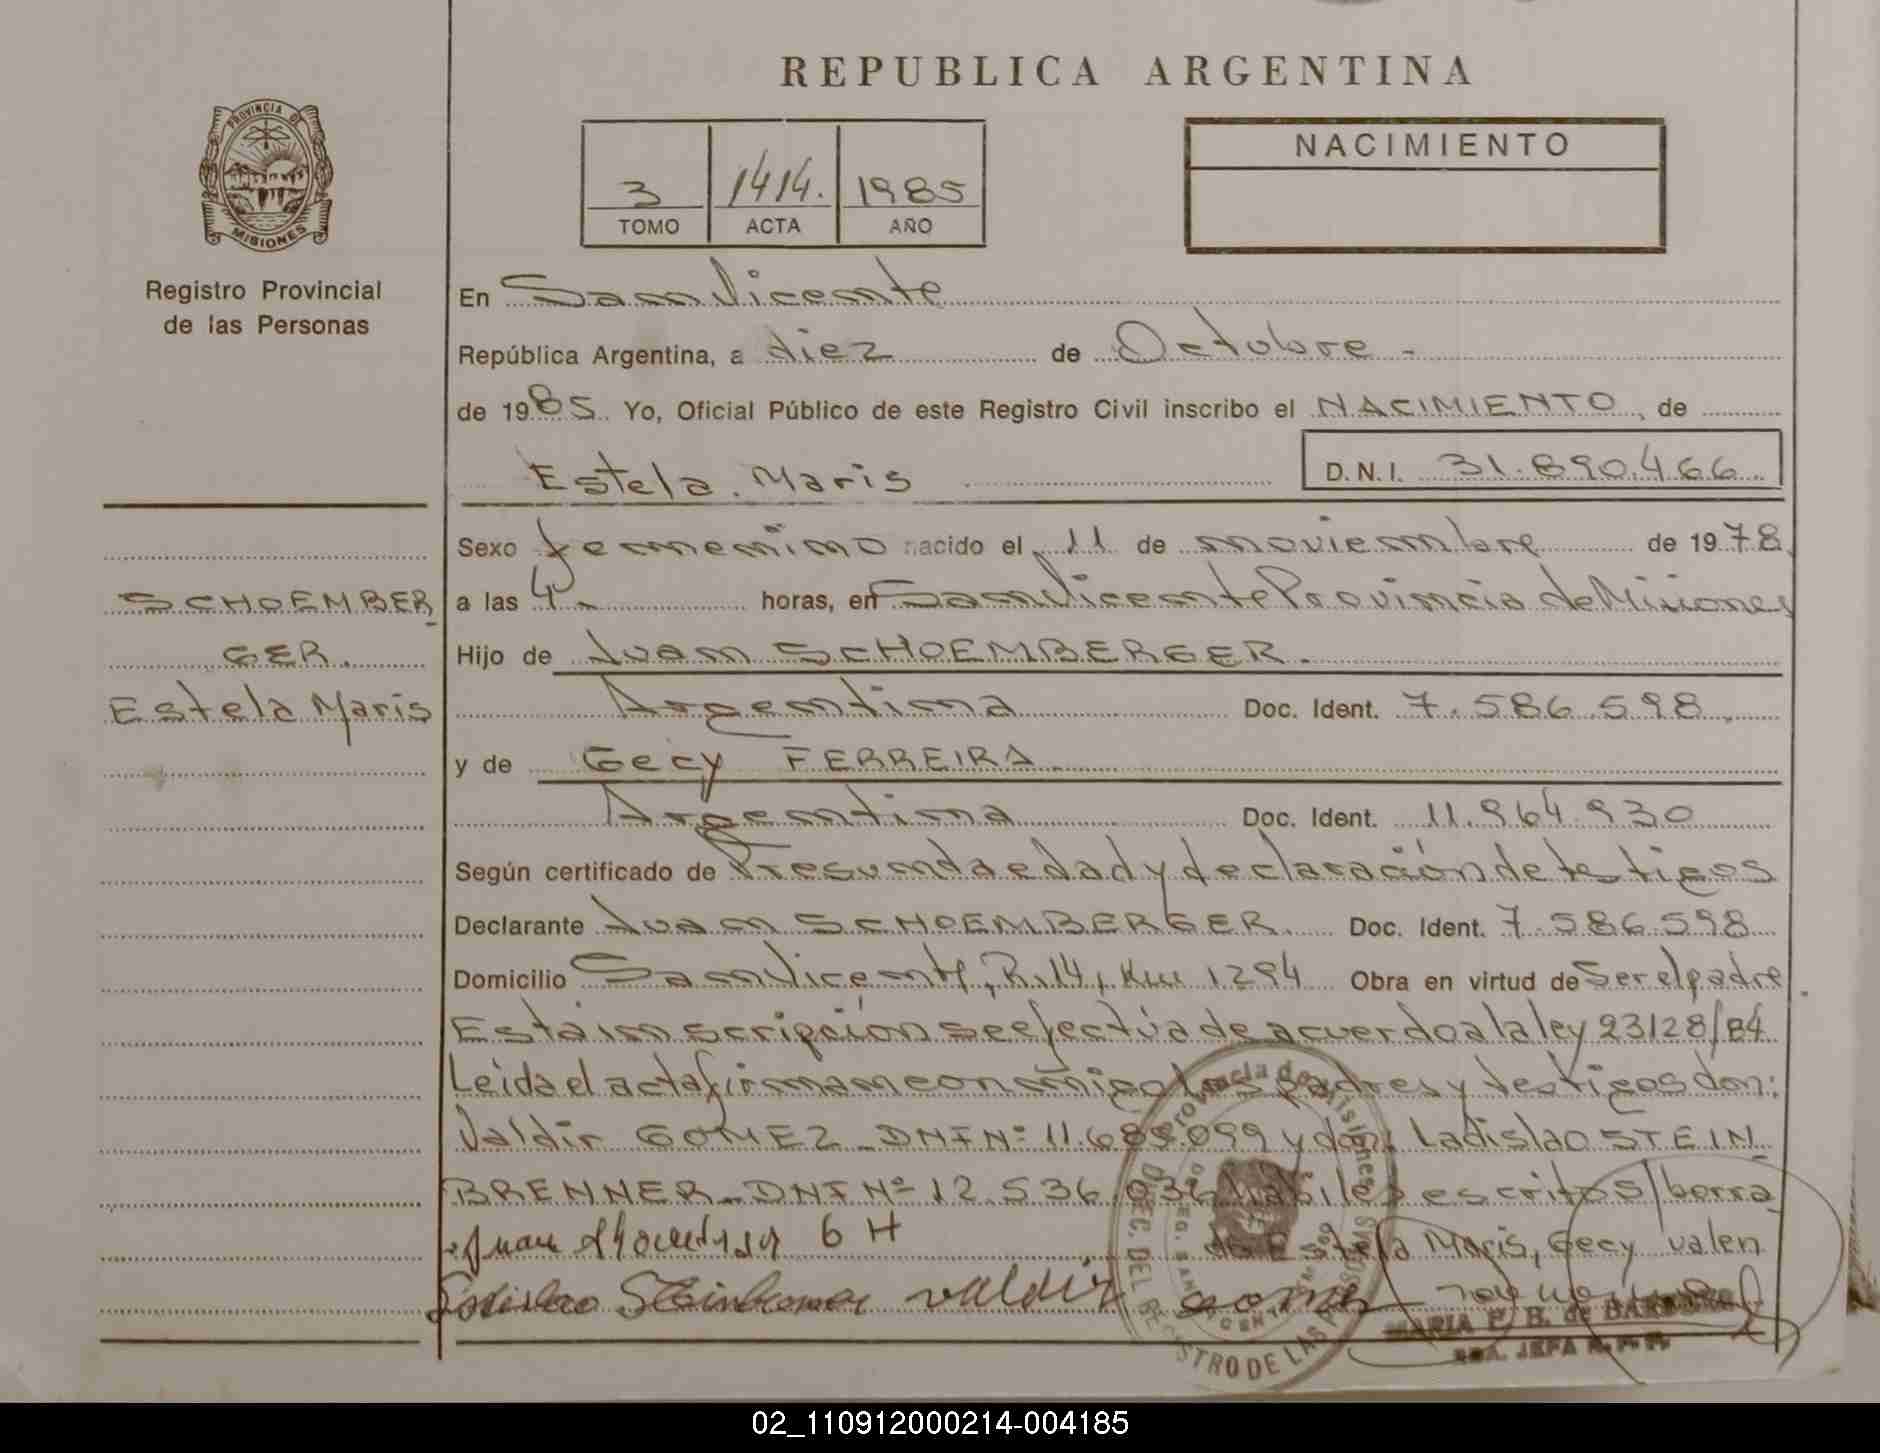 REPUBLICA ARGENTINA
PROVINCIA DE
MISIONES
Registro Provincial
de las Personas
3 1414. 1985
TOMO ACTA AÑO
NACIMIENTO
En San Vicente
República Argentina, a diez de Octubre -
de 1985. Yo, Oficial Público de este Registro Civil inscribo el NACIMIENTO, de
Estela Maris D.N.I. 31.890.466
Sexo femenino nacido el 11 de noviembre de 1978
SCHOEMBER a las 4 horas, en San Vicente Provincia de Misiones
GER. Hijo de Juan SCHOEMBERGER.
Estela Maris Argentina Doc. Ident. 7.586.598
y de Gecy FERREIRA
Argentina Doc. Ident. 11.964.930
Según certificado de Presunta edad y declaración de testigos
Declarante Juan SCHOEMBERGER. Doc. Ident. 7.586.598
Domicilio San Vicente, R.14, Km 1294 Obra en virtud de Ser el padre
Esta inscripción se efectúa de acuerdo a la ley 23128/84
Leída el acta firman conmigo los padres y testigos don:
Valdir GOMEZ - DNI Nº 11.685.099 y don: Ladislao STEIN
BRENNER - DNI Nº 12.536.036 habiles escritos/borra
6 H do Estela Maris, Gecy valen
Ladislao Steinbrenner valdir gomez
MARIA E. H. de
JEFA R.P.P.
Provincia de Misiones
DIREC. DEL REGISTRO DE LAS PERSONAS
02_110912000214-004185